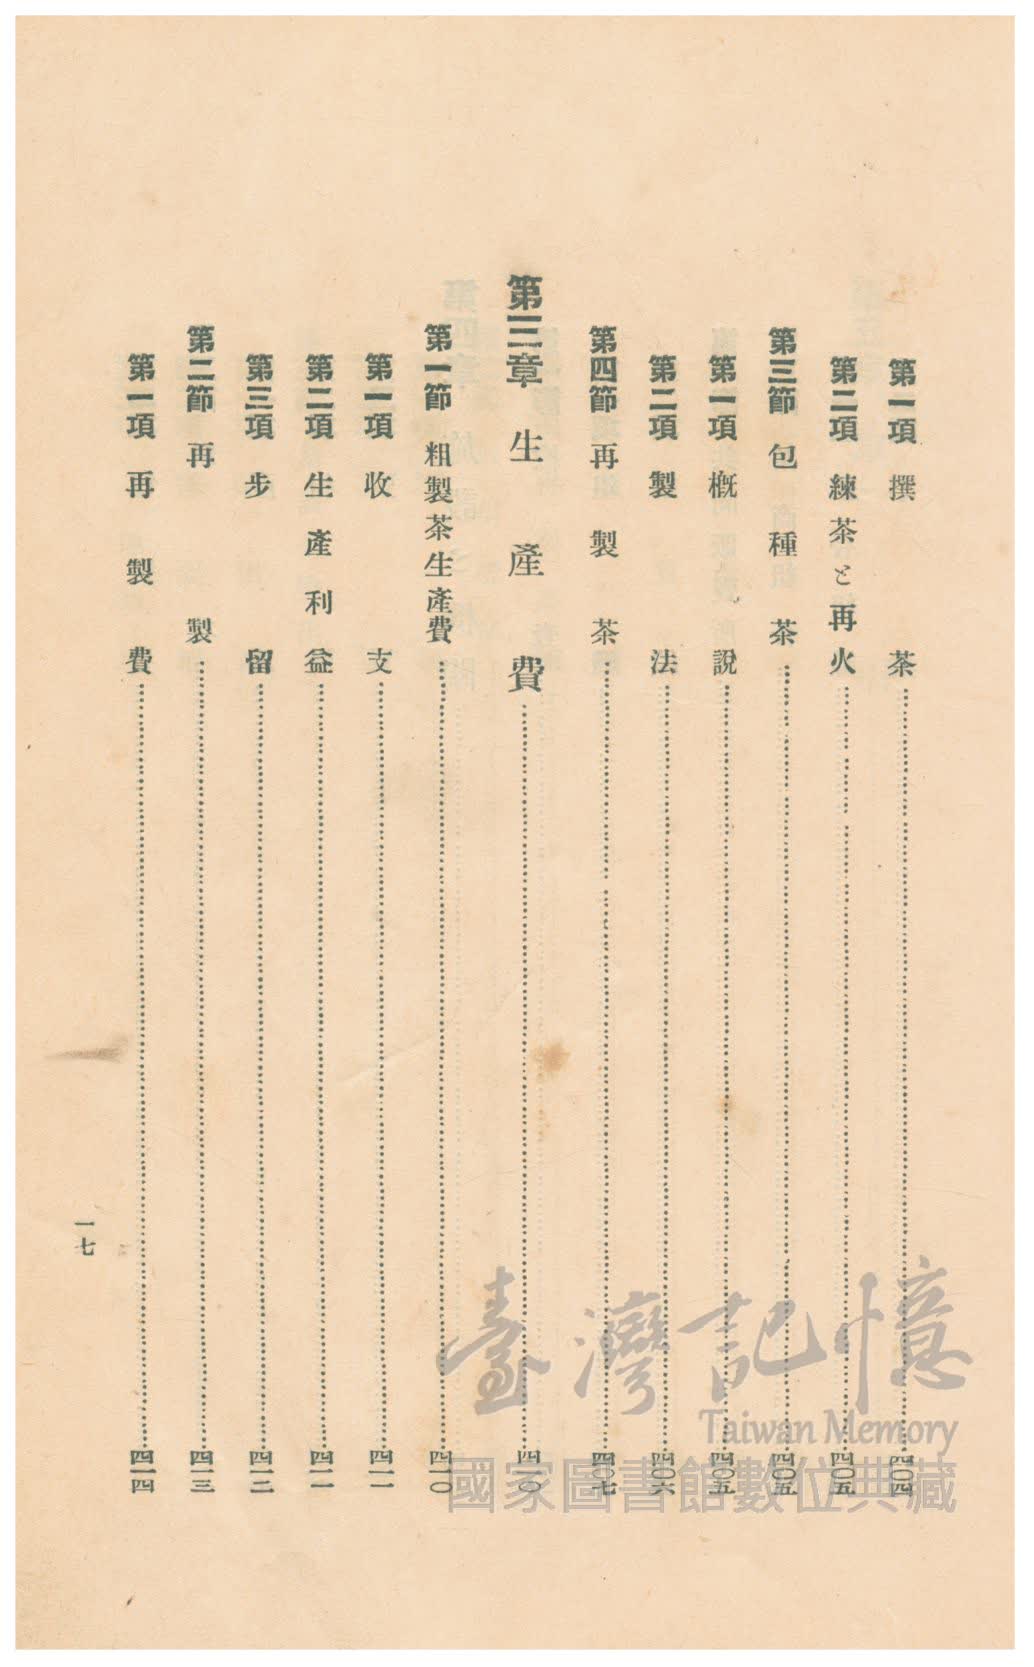 第一項 撰茶……四〇四
第二項 練茶と再火……四〇五
第三節 包種茶……四〇五
第一項 槪說……四〇五
第二項 製法……四〇六
第四節 再製茶……四〇七
第三章 生產費……四一〇
第一節 粗製茶生產費……四一〇
第一項 收支……四一一
第二項 生產利益……四一一
第三項 步留……四一二
第二節 再製……四一三
第一項 再製費……四一四
一七
臺灣記憶
Taiwan Memory
國家圖書館數位典藏